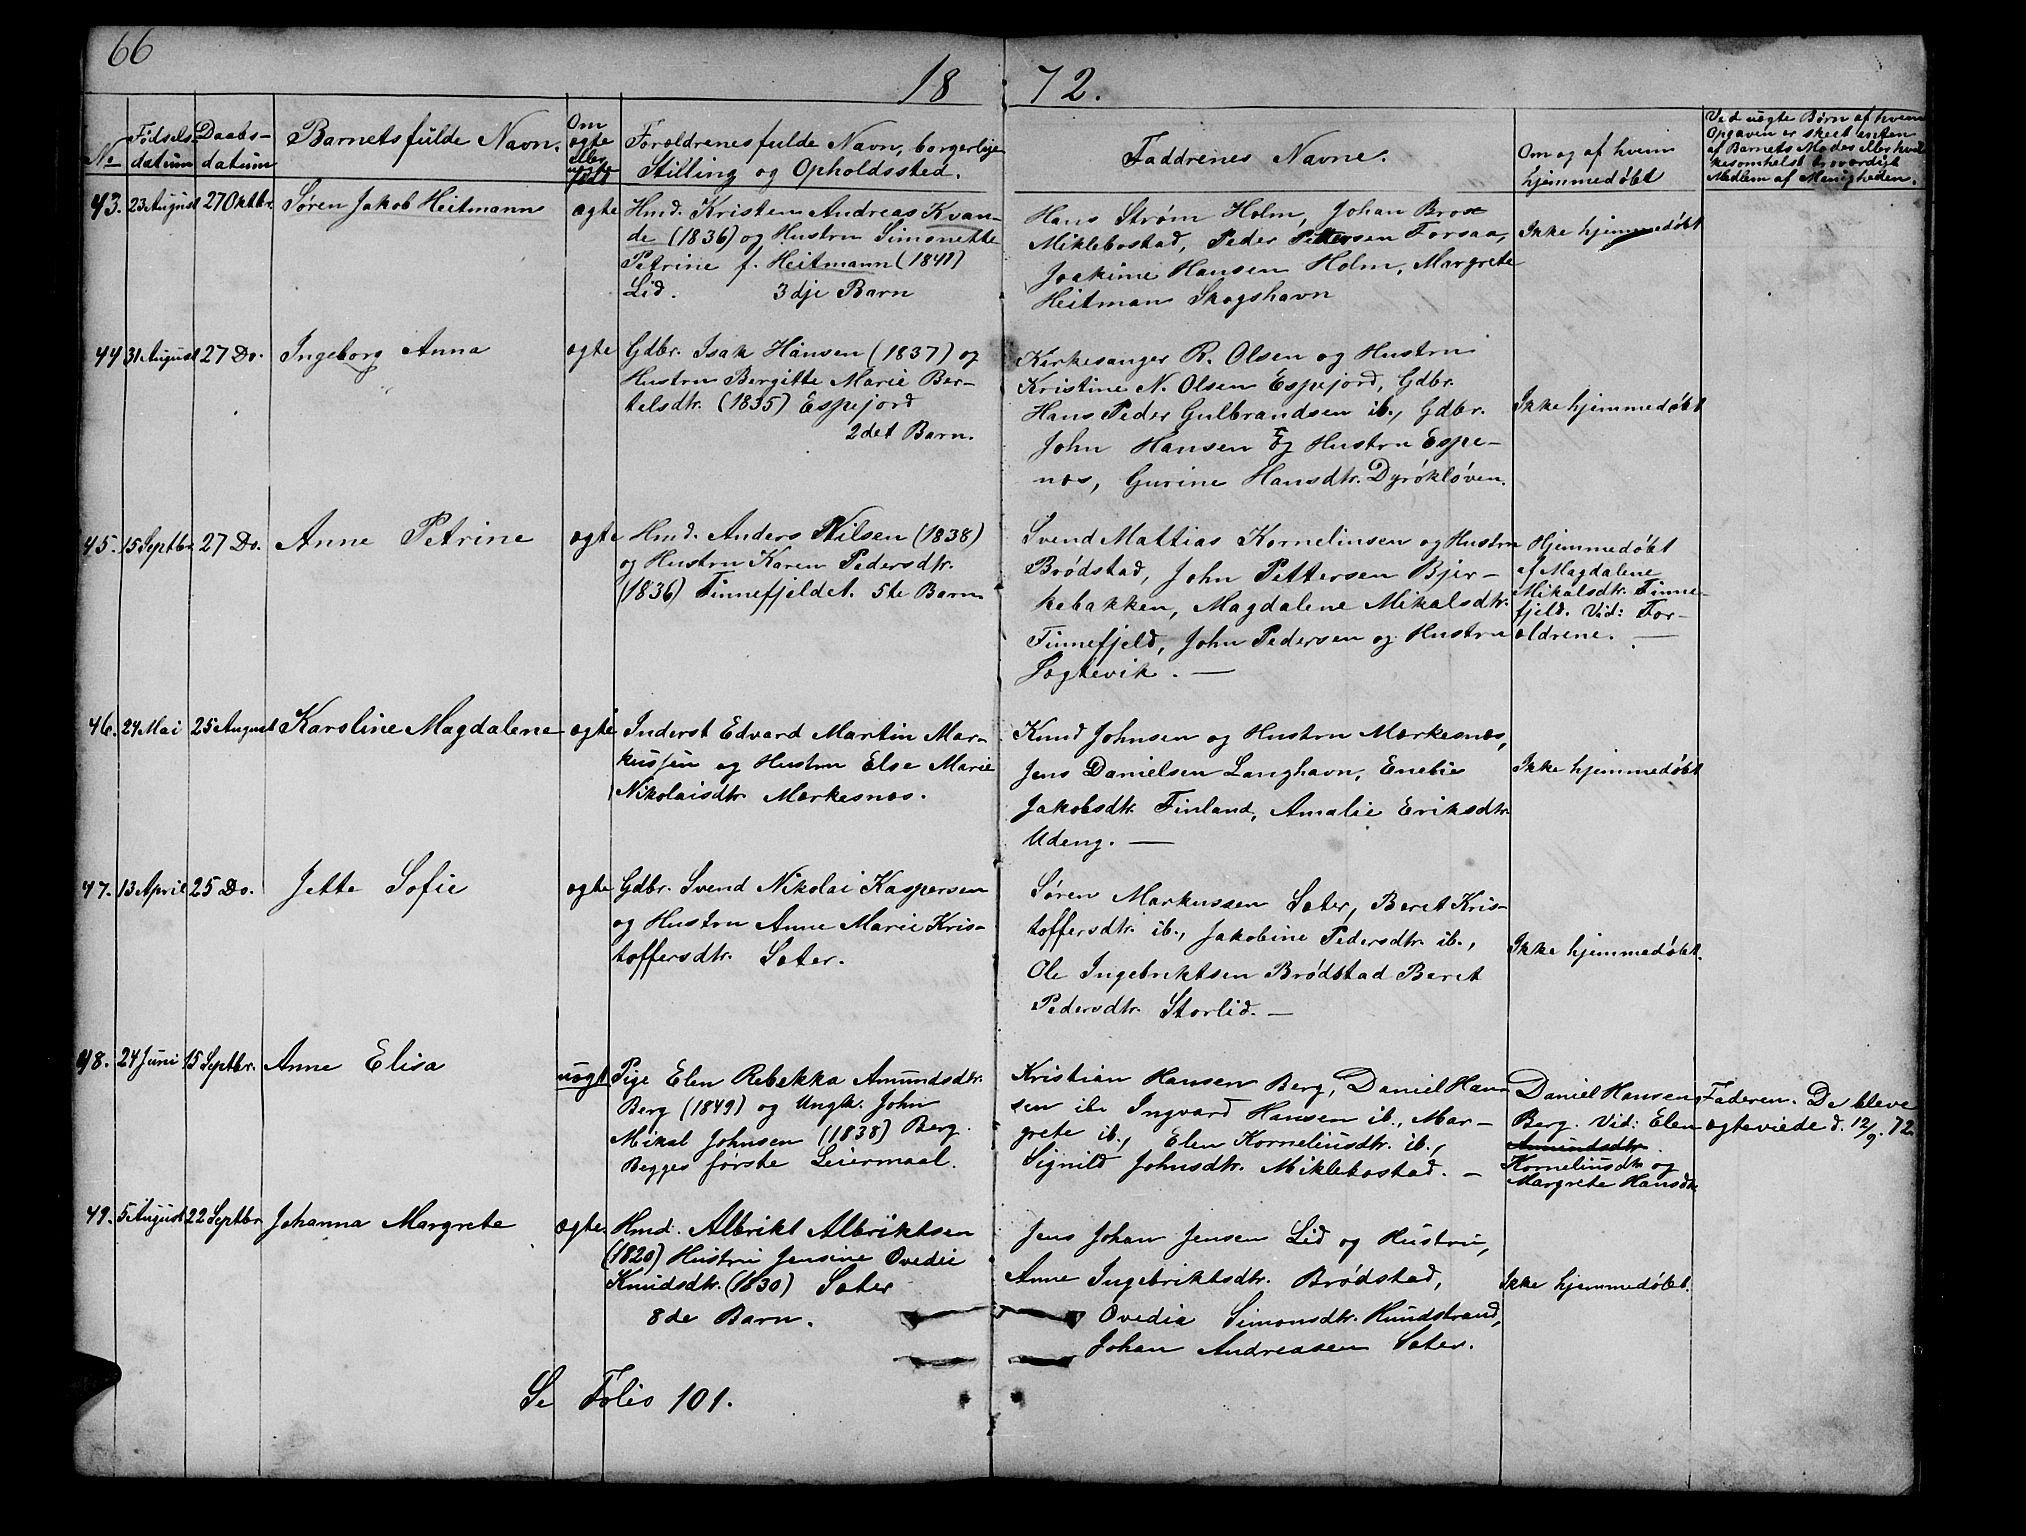 66
18 72.
No
Fødsels-
datum
Daabs-
datum
Barnets fulde Navn.
Om
ægte
eller
uægte
født
Forældrenes fulde Navn, borgerlige
Stilling og Opholdssted.
Faddrenes Navne.
Om og af hvem
hjemmedøbt
Ved uægte Børn af hvem
Opgaven er skeet enten
af Barnets Moder eller hvil-
kesomhelst troværdigt
Medlem af Menigheden.
43. 23 August 27 Oktbr. Søren Jakob Heitmann ægte
Hmd. Kristen Andreas Kvan-
de (1836) og Hustru Simonette
Petrine f. Heitmann (1841)
Lid. 3dje Barn
Hans Strøm Holm, Johan Brox
Miklebostad, Peder Pettersen Forsaa,
Joakime Hansen Holm, Margrete
Heitman Skogshavn
Ikke hjemmedøbt
44 31 August 27 Do. Ingeborg Anna ægte
Gdbr. Isak Hansen (1837) og
Hustru Bergitte Marie Ber-
telsdtr. (1835) Espejord
2det Barn.
Kirkesanger R. Olsen og Hustru
Kristine N. Olsen Espejord, Gdbr.
Hans Peder Gulbrandsen ib., Gdbr.
John Hansen og Hustru Espe-
næs, Gurine Hansdtr. Dyrøkløven.
Ikke hjemmedøbt
45. 15 Septbr. 27 Do. Anne Petrine ægte
Hmd. Anders Nilsen (1838)
og Hustru Karen Pedersdtr.
(1836) Finnefjeldet. 5te Barn
Svend Mattias Kornelinsen og Hustru
Brødstad, John Pettersen Bjer-
kebakken, Magdalene Mikalsdtr.
Finnefjeld, John Pedersen og Hustru
Sægtevik. —
Hjemmedøbt
af Magdalene
Mikalsdtr. Finne-
fjeld. Vid: For-
ældrene. —
46. 24 Mai 25 August Karoline Magdalene ægte
Inderst Edvard Martin Mar-
kussen og Hustru Else Marie
Nikolaisdtr. Mærkesnæs.
Knud Johnsen og Hustru Mærkesnæs,
Jens Danielsen Langhavn, Enebie
Jakobsdtr. Finland, Amalie Eriksdtr.
Udeng. —
Ikke hjemmedøbt
47. 13 April 25 Do. Jette Sofie ægte
Gdbr. Svend Nikolai Kaspersen
og Hustru Anne Marie Kris-
toffersdtr. Sæter.
Søren Markussen Sæter, Beret Kris-
toffersdtr. ib., Jakobine Pedersdtr. ib.,
Ole Ingebriktsen Brødstad Beret
Pedersdtr. Storlid. —
Ikke hjemmedøbt.
48. 24 Juni 15 Septbr. Anne Elisa uægt
Pige Elen Rebekka Amundsdtr.
Berg (1849) og Ungk. John
Mikal Johnsen (1838) Berg.
Begges første Leiermaal.
Kristian Hansen Berg, Daniel Han-
sen ib. Ingvard Hansen ib., Mar-
grete ib., Elen Korneliusdtr. ib.,
Signild Johnsdtr. Miklebostad. —
Daniel Hansen
Berg. Vid: Elen
Amundsdtr.
Korneliusdtr. og
Margrete Hansdtr.
Faderen. De bleve
ægteviede d. 12/9. 72.
49. 5 August 22 Septbr. Johanna Margrete ægte
Hmd. Albrikt Albriktsen
(1820) Hustru Jensine Ovedie
Knudsdtr. (1830) Sæter
8de Barn.
Jens Johan Jensen Lid og Hustru,
Anne Ingebriktsdtr. Brødstad,
Ovedia Simonsdtr. Hundstrand,
Johan Andreasen Sæter.
Ikke hjemmedøbt.
Se Folio 101.